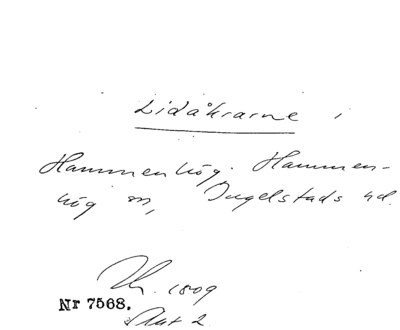 Lidåkrarne i
Hammenhög. Hammen-
hög sn, Ingelstads hd.
1809
Nr 7568.
Akt 2